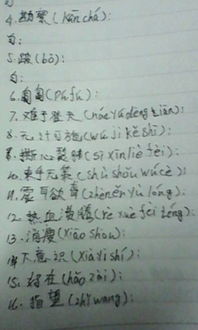 4.勘察(kān chá):
句:
5.跛(bǒ):
句:
6.匍匐(pú fú):
7.难于登天(nán yú dēng tiān):
8.无计可施(wú jì kě shī):
9.撕心裂肺(sī xīn liè fèi):
10.束手无策(shù shǒu wú cè):
11.震耳欲聋(zhèn ěr yù lóng):
12.热血沸腾(rè xuè fèi téng):
13.消瘦(xiāo shòu):
14.下意识(xià yì shí):
15.好在(hǎo zài):
16.指望(zhǐ wàng):